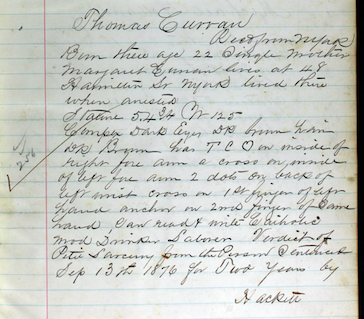 Thomas Curran
Recd from N York
Born there age 22 Single Mother
Margaret Curran lives at 48
Hamilton St N York lived there
when arrested
Stature 5.4 3/4 W 125
Complex Dark Eyes DK brown hair
DK Brown has T C O on inside of
right fore arm a cross on inside
of left fore arm 2 dots on back of
left wrist cross on 1st finger of left
hand anchor on 2nd finger of same
hand Can read & write Catholic
mod Drinker Laborer Verdict of
Petit Larceny from the Person Sentenced
Sep 13th 1876 for Two Years by
Hackett